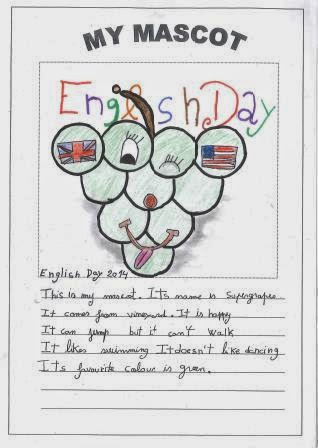 MY MASCOT
English Day
English Day 2014
This is my mascot. It's name is Supergrapes
It comes from vineyard. It is happy
It can jump but it can't walk
It likes swimming It doesn't like dancing
It's favourite colour is green.